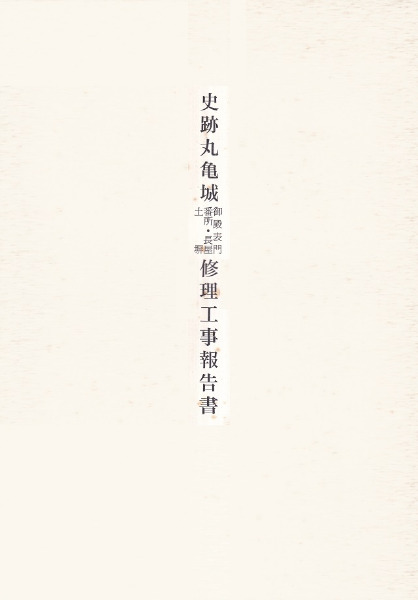 史跡丸亀城
御殿表門
番所・長屋
土塀
修理工事報告書